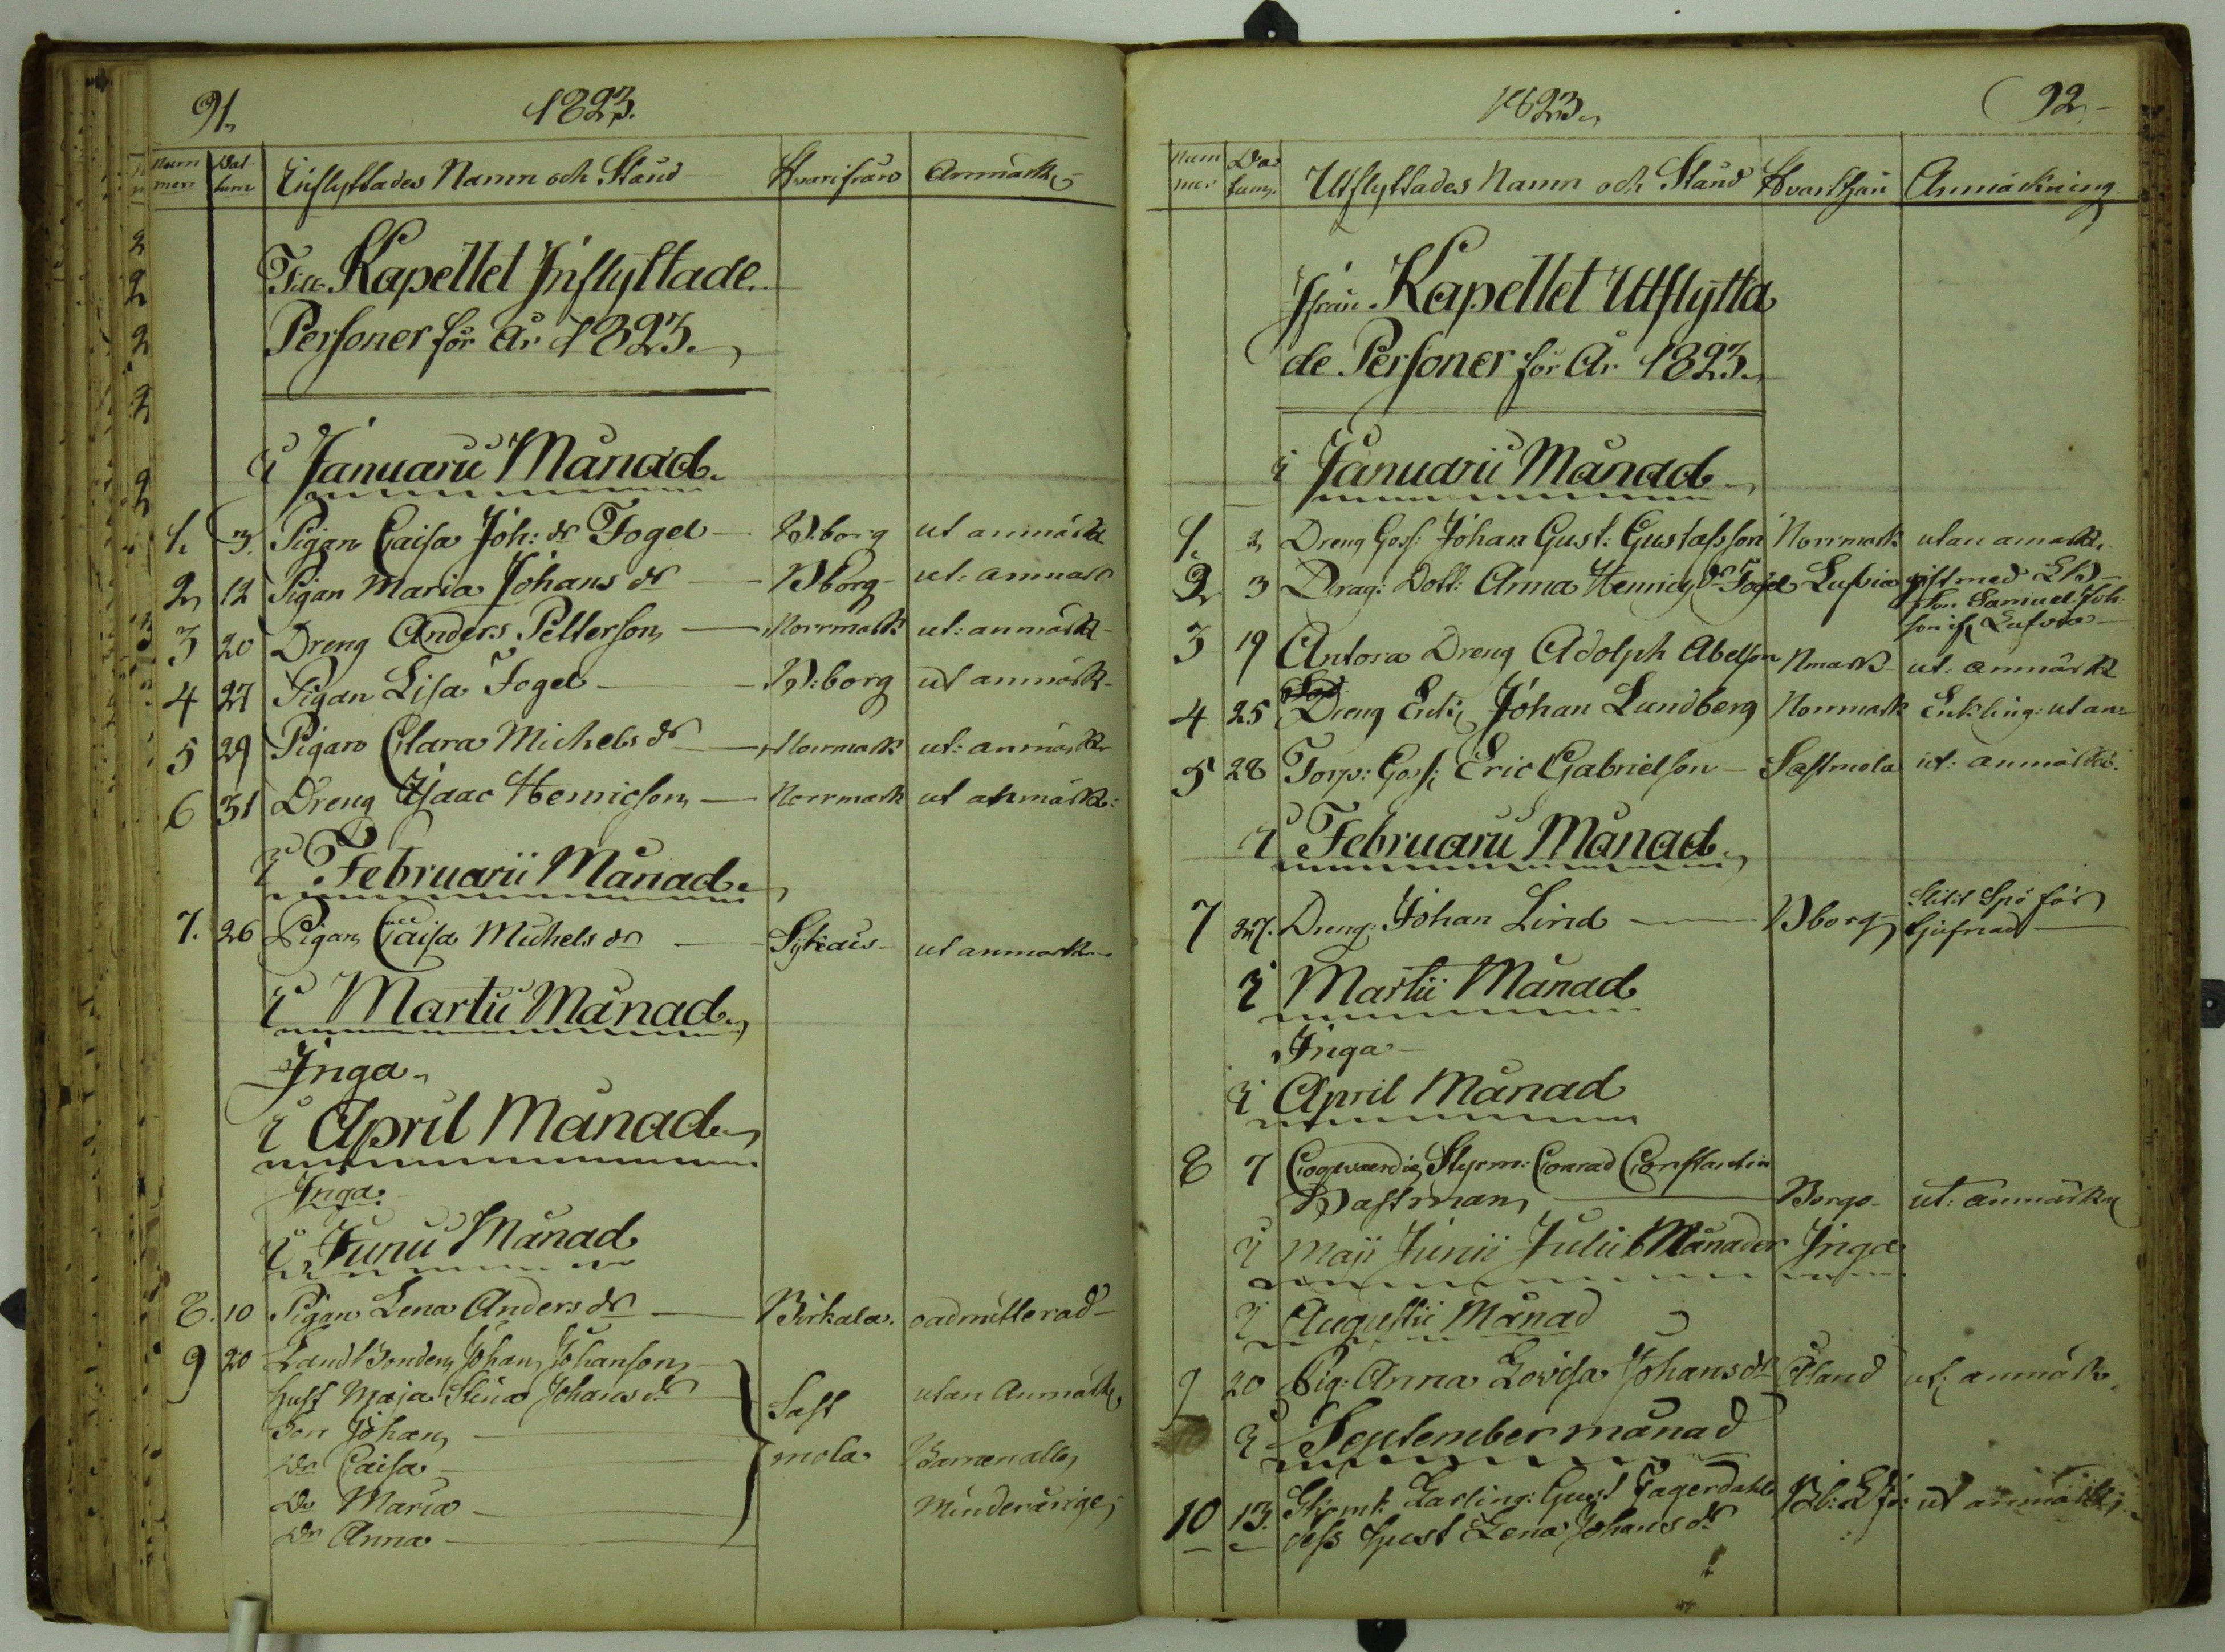 91.
1823.
Num Dat
mer tum Inflyttades Namn och Stånd Hvarifrån Anmärk
Till Kapellet Inflyttade
Personer för År 1823.
i Januarii Månad.
1. 3. Pigan Caisa Joh: dr Fogel B:borg ut anmärk
2 12 Pigan Maria Johans dr Bborg ut: anmärk
3 20 Dreng Anders Petterson Norrmark ut: anmärk
4 27 Pigan Lisa Fogel B:borg ut anmärk
5 29 Pigan Clara Michels dr Norrmark ut: anmärk
6 31 Dreng Isaac Henricson Norrmark ut anmärk:
i Februarii Månad.
7. 26 Pigan Caisa Michels dr ut anmärk
i Martii Månad.
Inga
i April Månad
Inga
i Junii Månad
8. 10 Pigan Lena Anders dr Birkala. oadmitterad
9 20 Landtbonden Johan Johanson
hust Maja Stina Johans dr Sast utan Anmärk
Son Johan
Dr Caisa mola Barnen alle
Dr Maria Minderårige
Dr Anna
1823. 92
Num Da
mer tum. Utflyttades Namn och Stånd Hvarthän Anmärkning
Ifrån Kapellet Utflytta
de Personer för År 1823.
i Januarii Månad
1. 2 Dreng Goss: Johan Gust: Gustafsson Norrmark utan anmärk.
2 3 Drag: Dott: Anna Henrics dr Fogel Lufvia gift med
Son Samuel Joh:
son if Lufvia
3 19 Antora Dreng Adolph Abelson Nmark ut: anmärk
4 25 Dreng Enk: Johan Lundberg Norrmark Enkling: utan
5 28 Torp: Goss: Eric Gabrielson Sastmola ut: anmärk
i Februarii Månad
7 27. Dreng: Johan Lind Bborg
för
tjufnad
i Martii Månad
Inga
i April Månad
8 7 Coopvaerdie Styrm: Conrad Constantin
Wastman Borgo ut: anmärkn
i Maji Junii Julii Månader Inga
i Augustii Månad
9 20 Pig: Anna Lovisa Johans dr Åland ut: anmärk
i September månad
10 13. Gust Fagerdahl ut anmärk
dess hust Lena Johans dr